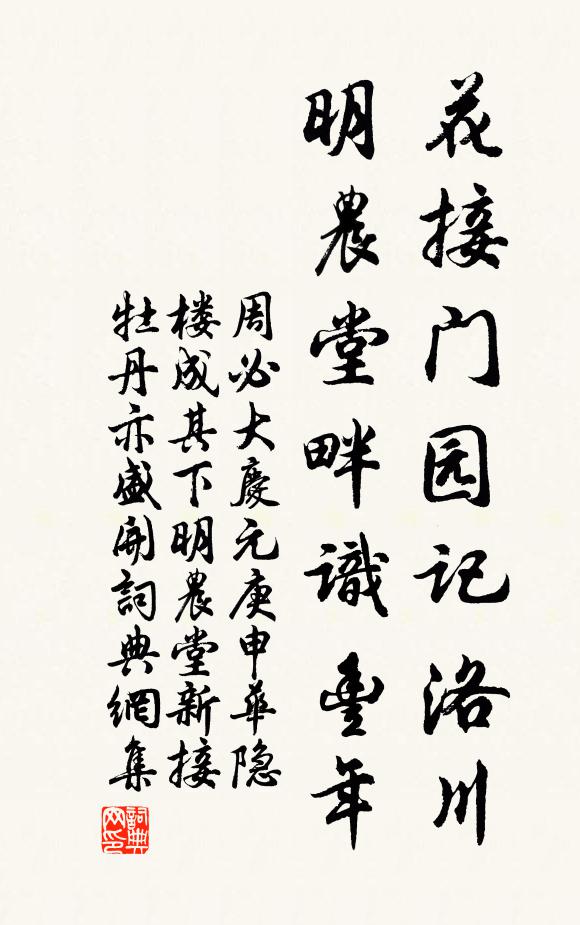 花接门园记洛川
明農堂畔識豊年
周必大慶元庚申華隐
楼成其下明農堂新接
牡丹亦盛開詞典網集
詞典网印